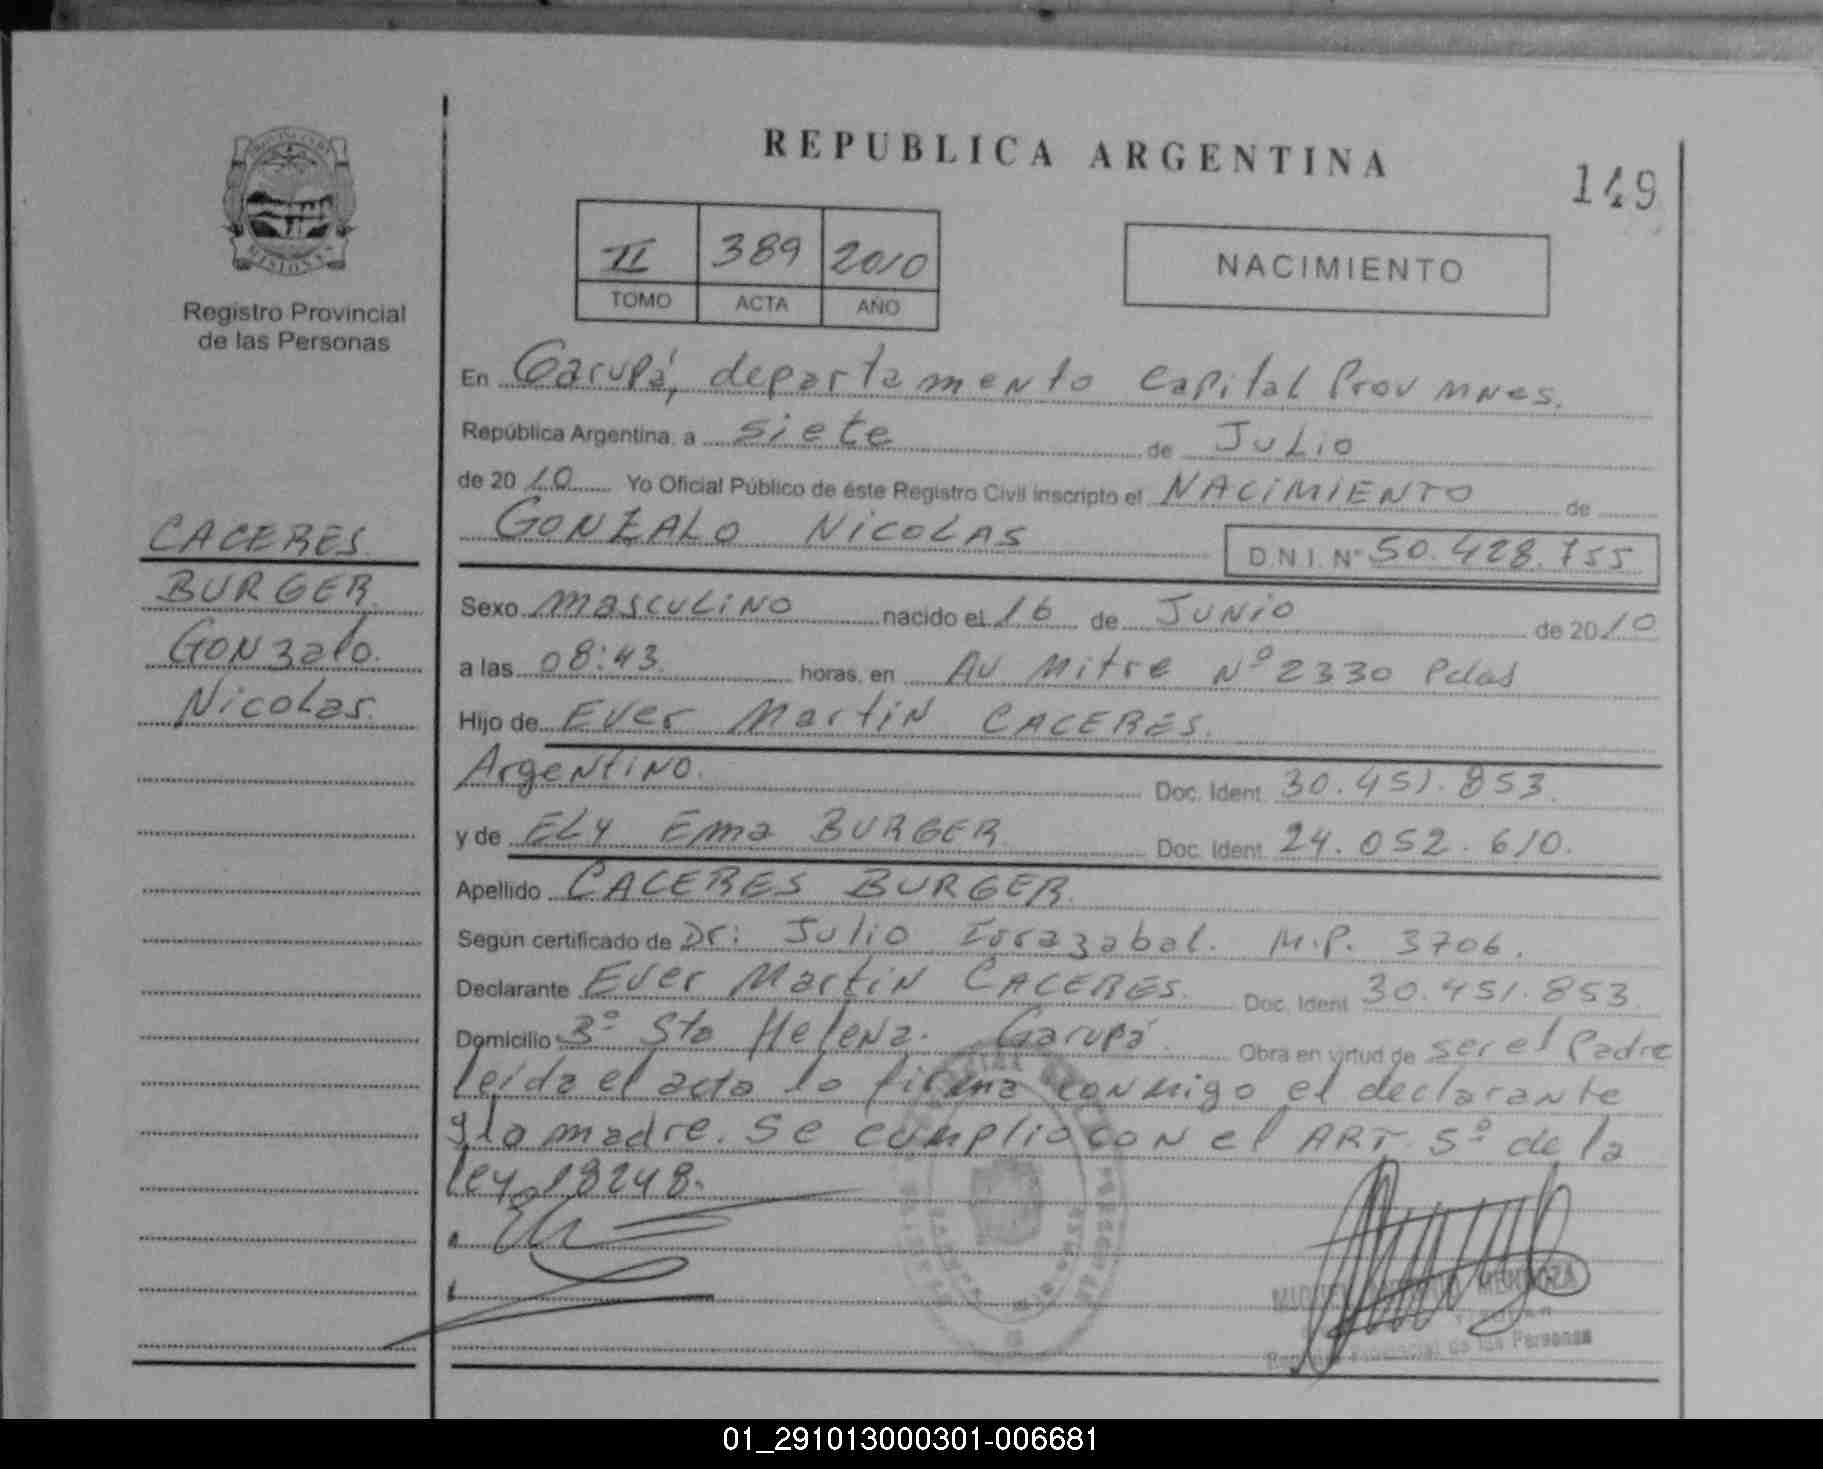 REPUBLICA ARGENTINA
149
MISIONES
Registro Provincial
de las Personas
II 389 2010
TOMO ACTA AÑO
NACIMIENTO
En Garupá, departamento Capital Prov Mnes.
República Argentina, a siete de Julio
de 2010 Yo Oficial Público de éste Registro Civil inscripto el NACIMIENTO de
GONZALO NICOLAS D.N.I. Nº 50.428.755
CACERES
BURGER
Gonzalo.
Nicolas.
Sexo masculino nacido el 16 de JUNIO de 2010
a las 08:43 horas, en Av Mitre Nº 2330 Pdas
Hijo de Ever Martin CACERES.
Argentino. Doc. Ident. 30.451.853.
y de ELY Ema BURGER Doc. Ident. 24.052.610.
Apellido CACERES BURGER.
Según certificado de Dr: Julio Irrazabal. M.P. 3706.
Declarante Ever Martin CACERES. Doc. Ident. 30.451.853
Domicilio Bº Sta Helena. Garupá. Obra en virtud de ser el Padre
leida el acta lo firma conmigo el declarante
y la madre. Se cumplio con el ART. 5º de la
ley 18248.
MENDOZA
Provincial de las Personas
01_291013000301-006681